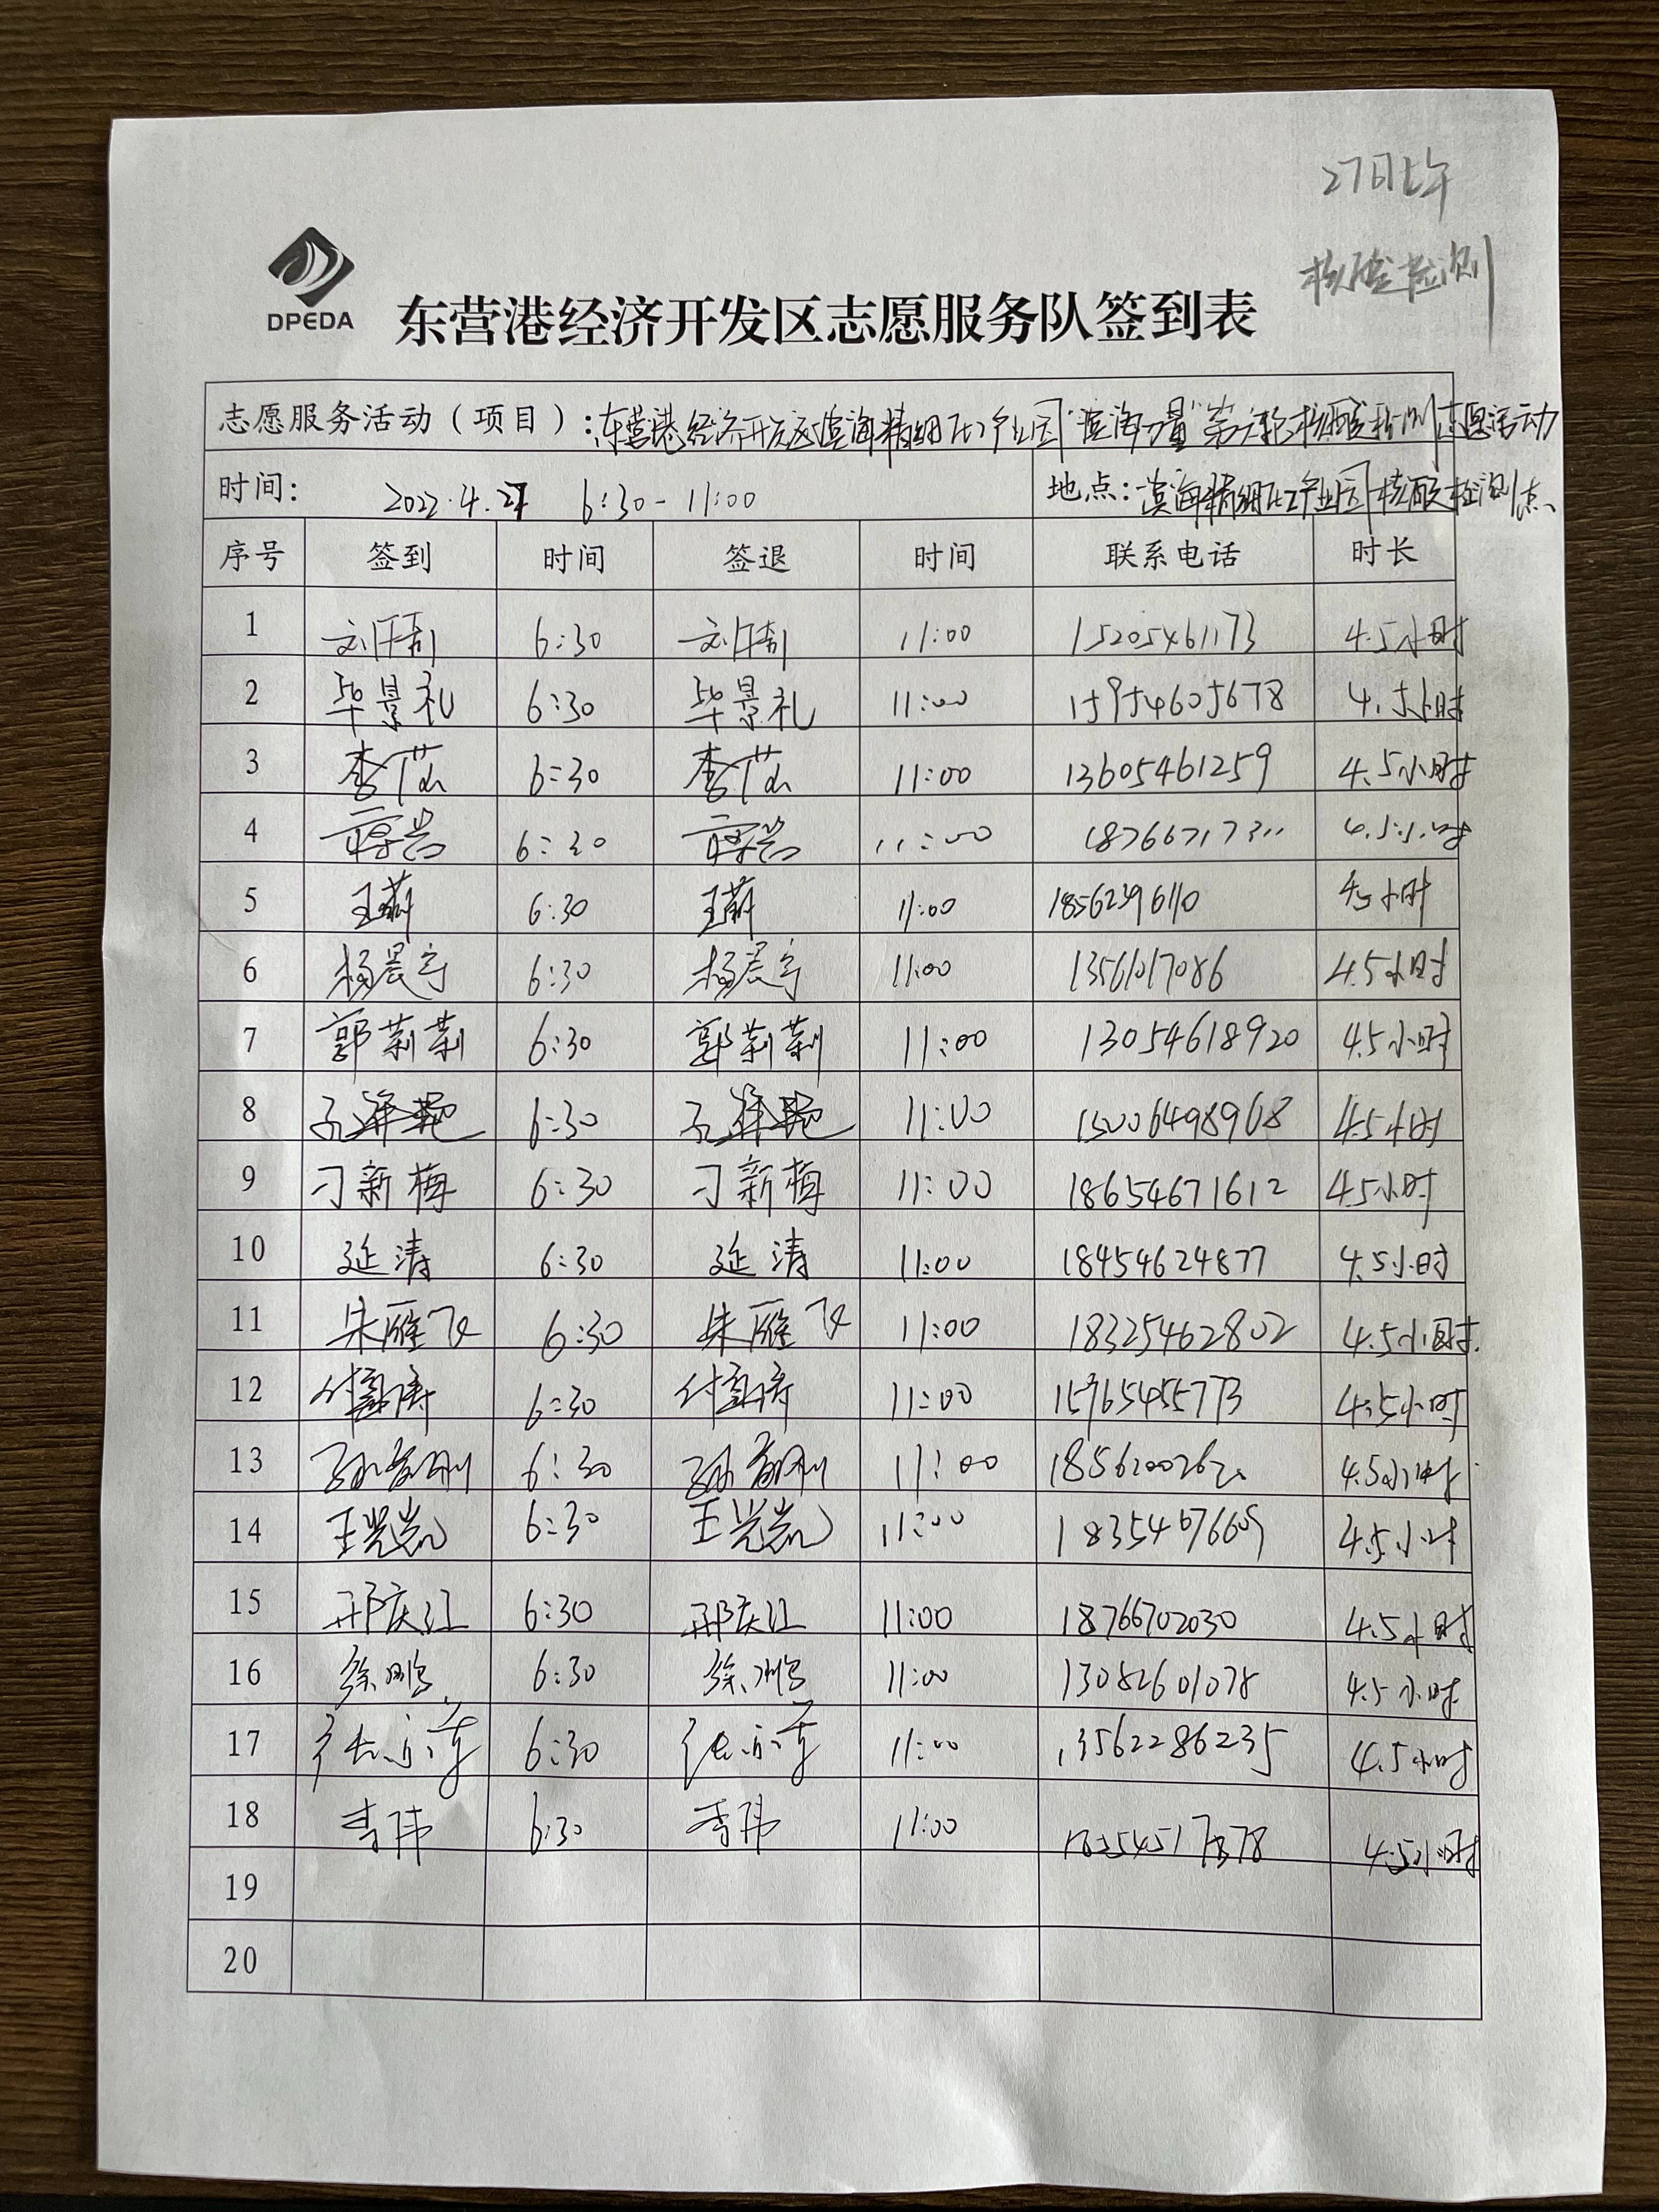 27日上午
核酸检测
DPEDA
东营港经济开发区志愿服务队签到表
志愿服务活动（项目）：东营港经济开发区滨海精细化工产业园"滨海力量"第六轮核酸检测志愿活动
时间： 2022.4.27 6:30-11:00 地点：滨海精细化工产业园核酸检测点
序号 签到 时间 签退 时间 联系电话 时长
1 6:30 11:00 15205461173 4.5小时
2 毕景礼 6:30 毕景礼 11:00 15954605678 4.5小时
3 李 6:30 李 11:00 13605461259 4.5小时
4 6:30 11:00 4.5小时
5 王 6:30 王 11:00 4.5小时
6 杨晨宇 6:30 杨晨宇 11:00 4.5小时
7 郭莉莉 6:30 郭莉莉 11:00 13054618920 4.5小时
8 6:30 11:00 15006498968 4.5小时
9 刁新梅 6:30 刁新梅 11:00 18654671612 4.5小时
10 延涛 6:30 延涛 11:00 18454624877 4.5小时
11 朱雁飞 6:30 朱雁飞 11:00 18325462802 4.5小时
12 6:30 11:00 15965455773 4.5小时
13 6:30 11:00 4.5小时
14 王光凯 6:30 王光凯 11:00 18354676609 4.5小时
15 邢庆江 6:30 邢庆江 11:00 18766702030 4.5小时
16 徐鹏 6:30 徐鹏 11:00 13082601078 4.5小时
17 6:30 11:00 13562286235 4.5小时
18 李玮 6:30 李玮 11:00 4.5小时
19
20